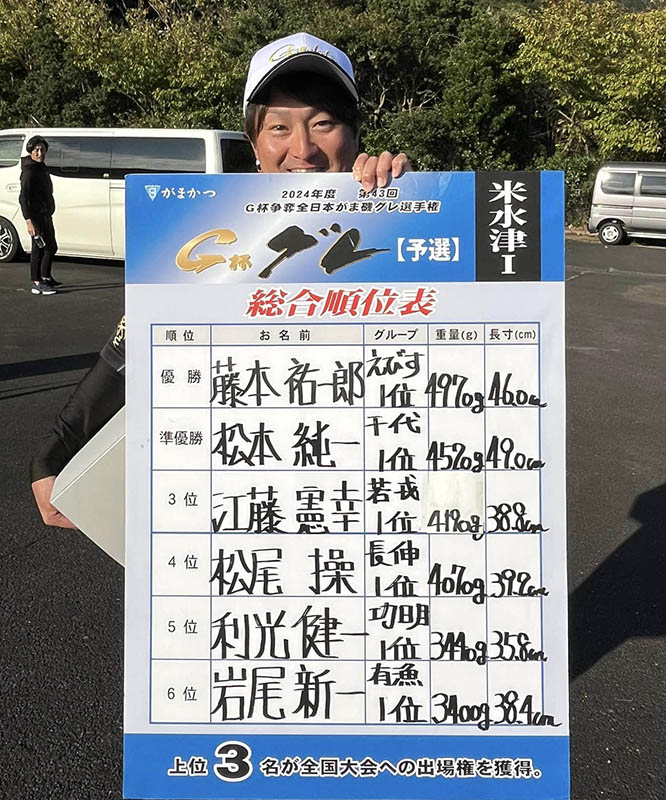 がまかつ
2024年度 第43回
G杯争奪全日本がま磯グレ選手権
G杯 グレ【予選】
米水津I
総合順位表
順位 お名前 グループ 重量(g) 長寸(cm)
優勝 藤本祐一郎 えびす1位 4970g 46.0cm
準優勝 松本純一 千代1位 4520g 49.0cm
3位 江藤憲幸 若戎1位 4190g 38.8cm
4位 松尾操 長伸1位 4070g 39.2cm
5位 利光健一 功明1位 3440g 35.8cm
6位 岩尾新一 有漁1位 3400g 38.4cm
上位3名が全国大会への出場権を獲得。